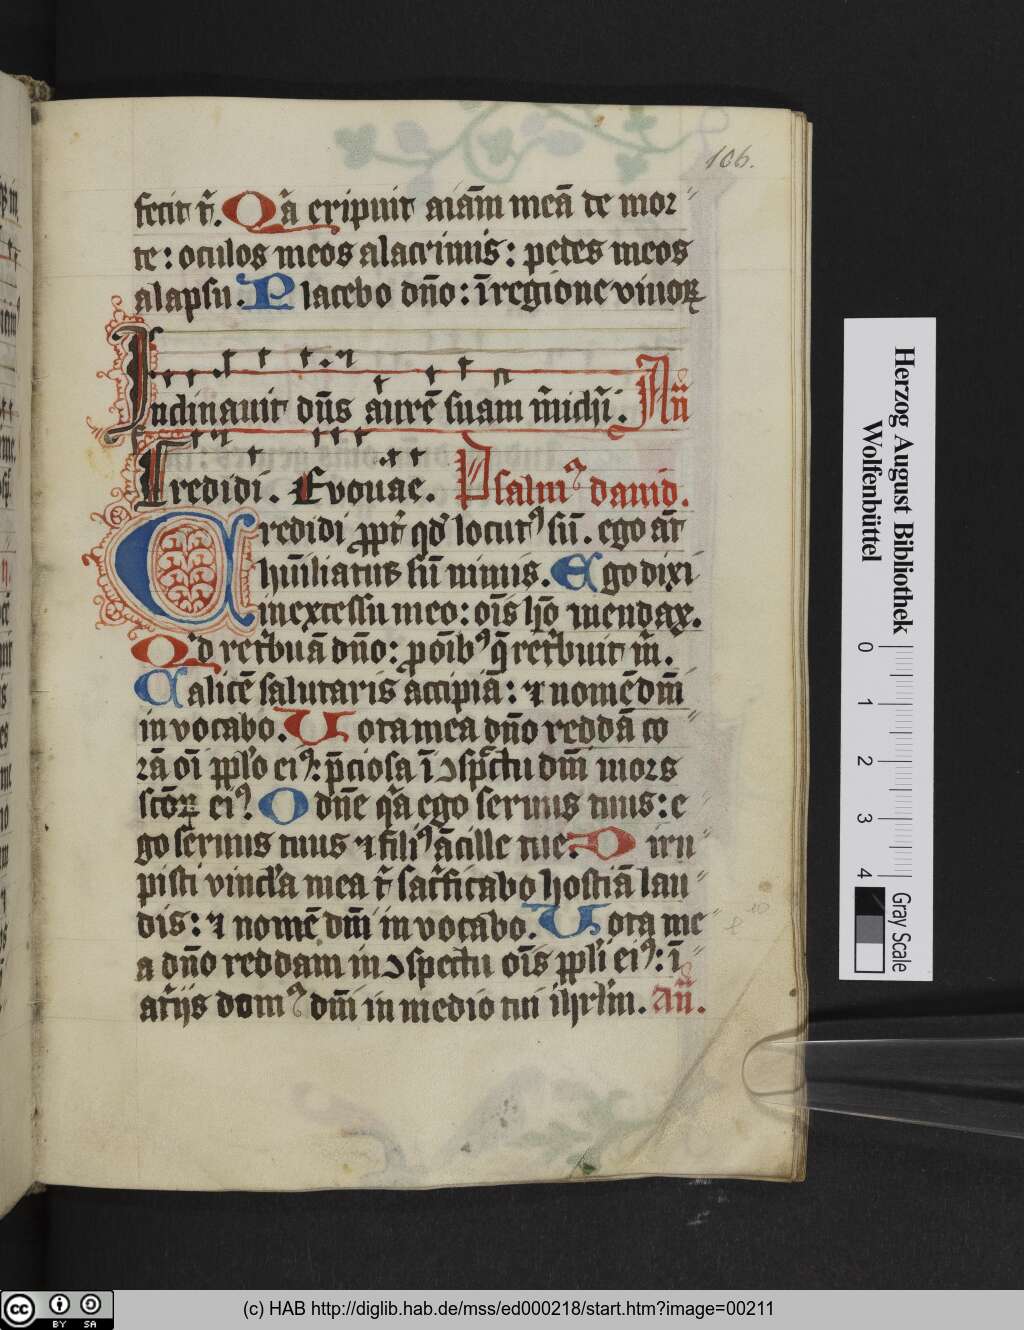 106.
fecit t̄. Qā eripuit aīam meā de mor〃
te: oculos meos alacrimis: pedes meos
alapsu. Placebo dn̄o: īregione viuoꝝ
Inclinauit dn̄s aurē suam m̄ichi. An̄
Credidi. Evouae. Psalmꝰ dauid.
Credidi ꝓpt̄ qd̛ locutꝰ sū. ego aūt
hūiliatus sū nimis. Ego dixi
inexcessu meo: oīs hō mendax.
Qd̛ ret̛buā dn̄o: ꝓ oīb̛ꝰ q̄ ret̛buit m̄.
Calicē salutaris accipiā: ⁊ nomē dn̄i
invocabo. Uota mea dn̄o reddā co〃
rā oī ppl̄o eiꝰ: p̄ciosa ī ↄspc̄tu dn̄i mors
sc̄oꝝ eiꝰ. O dn̄e q̄a ego seruus tuus: e〃
go seruus tuus ⁊ filiꝰ ācille tue. Diru〃
pisti vincl̛a mea t̄ sac̛ficabo hostiā lau〃
dis: ⁊ nomē dn̄i invocabo. Uota me〃
a dn̄o reddam inↄspectu oīs ppl̄i eiꝰ: ī〃
at̛ijs domꝰ dn̄i in medio tui ihrl̄m. An̄.
Herzog August Bibliothek
Wolfenbüttel
0 1 2 3 4
Gray Scale
cc BY SA
(c) HAB http://diglib.hab.de/mss/ed000218/start.htm?image=00211